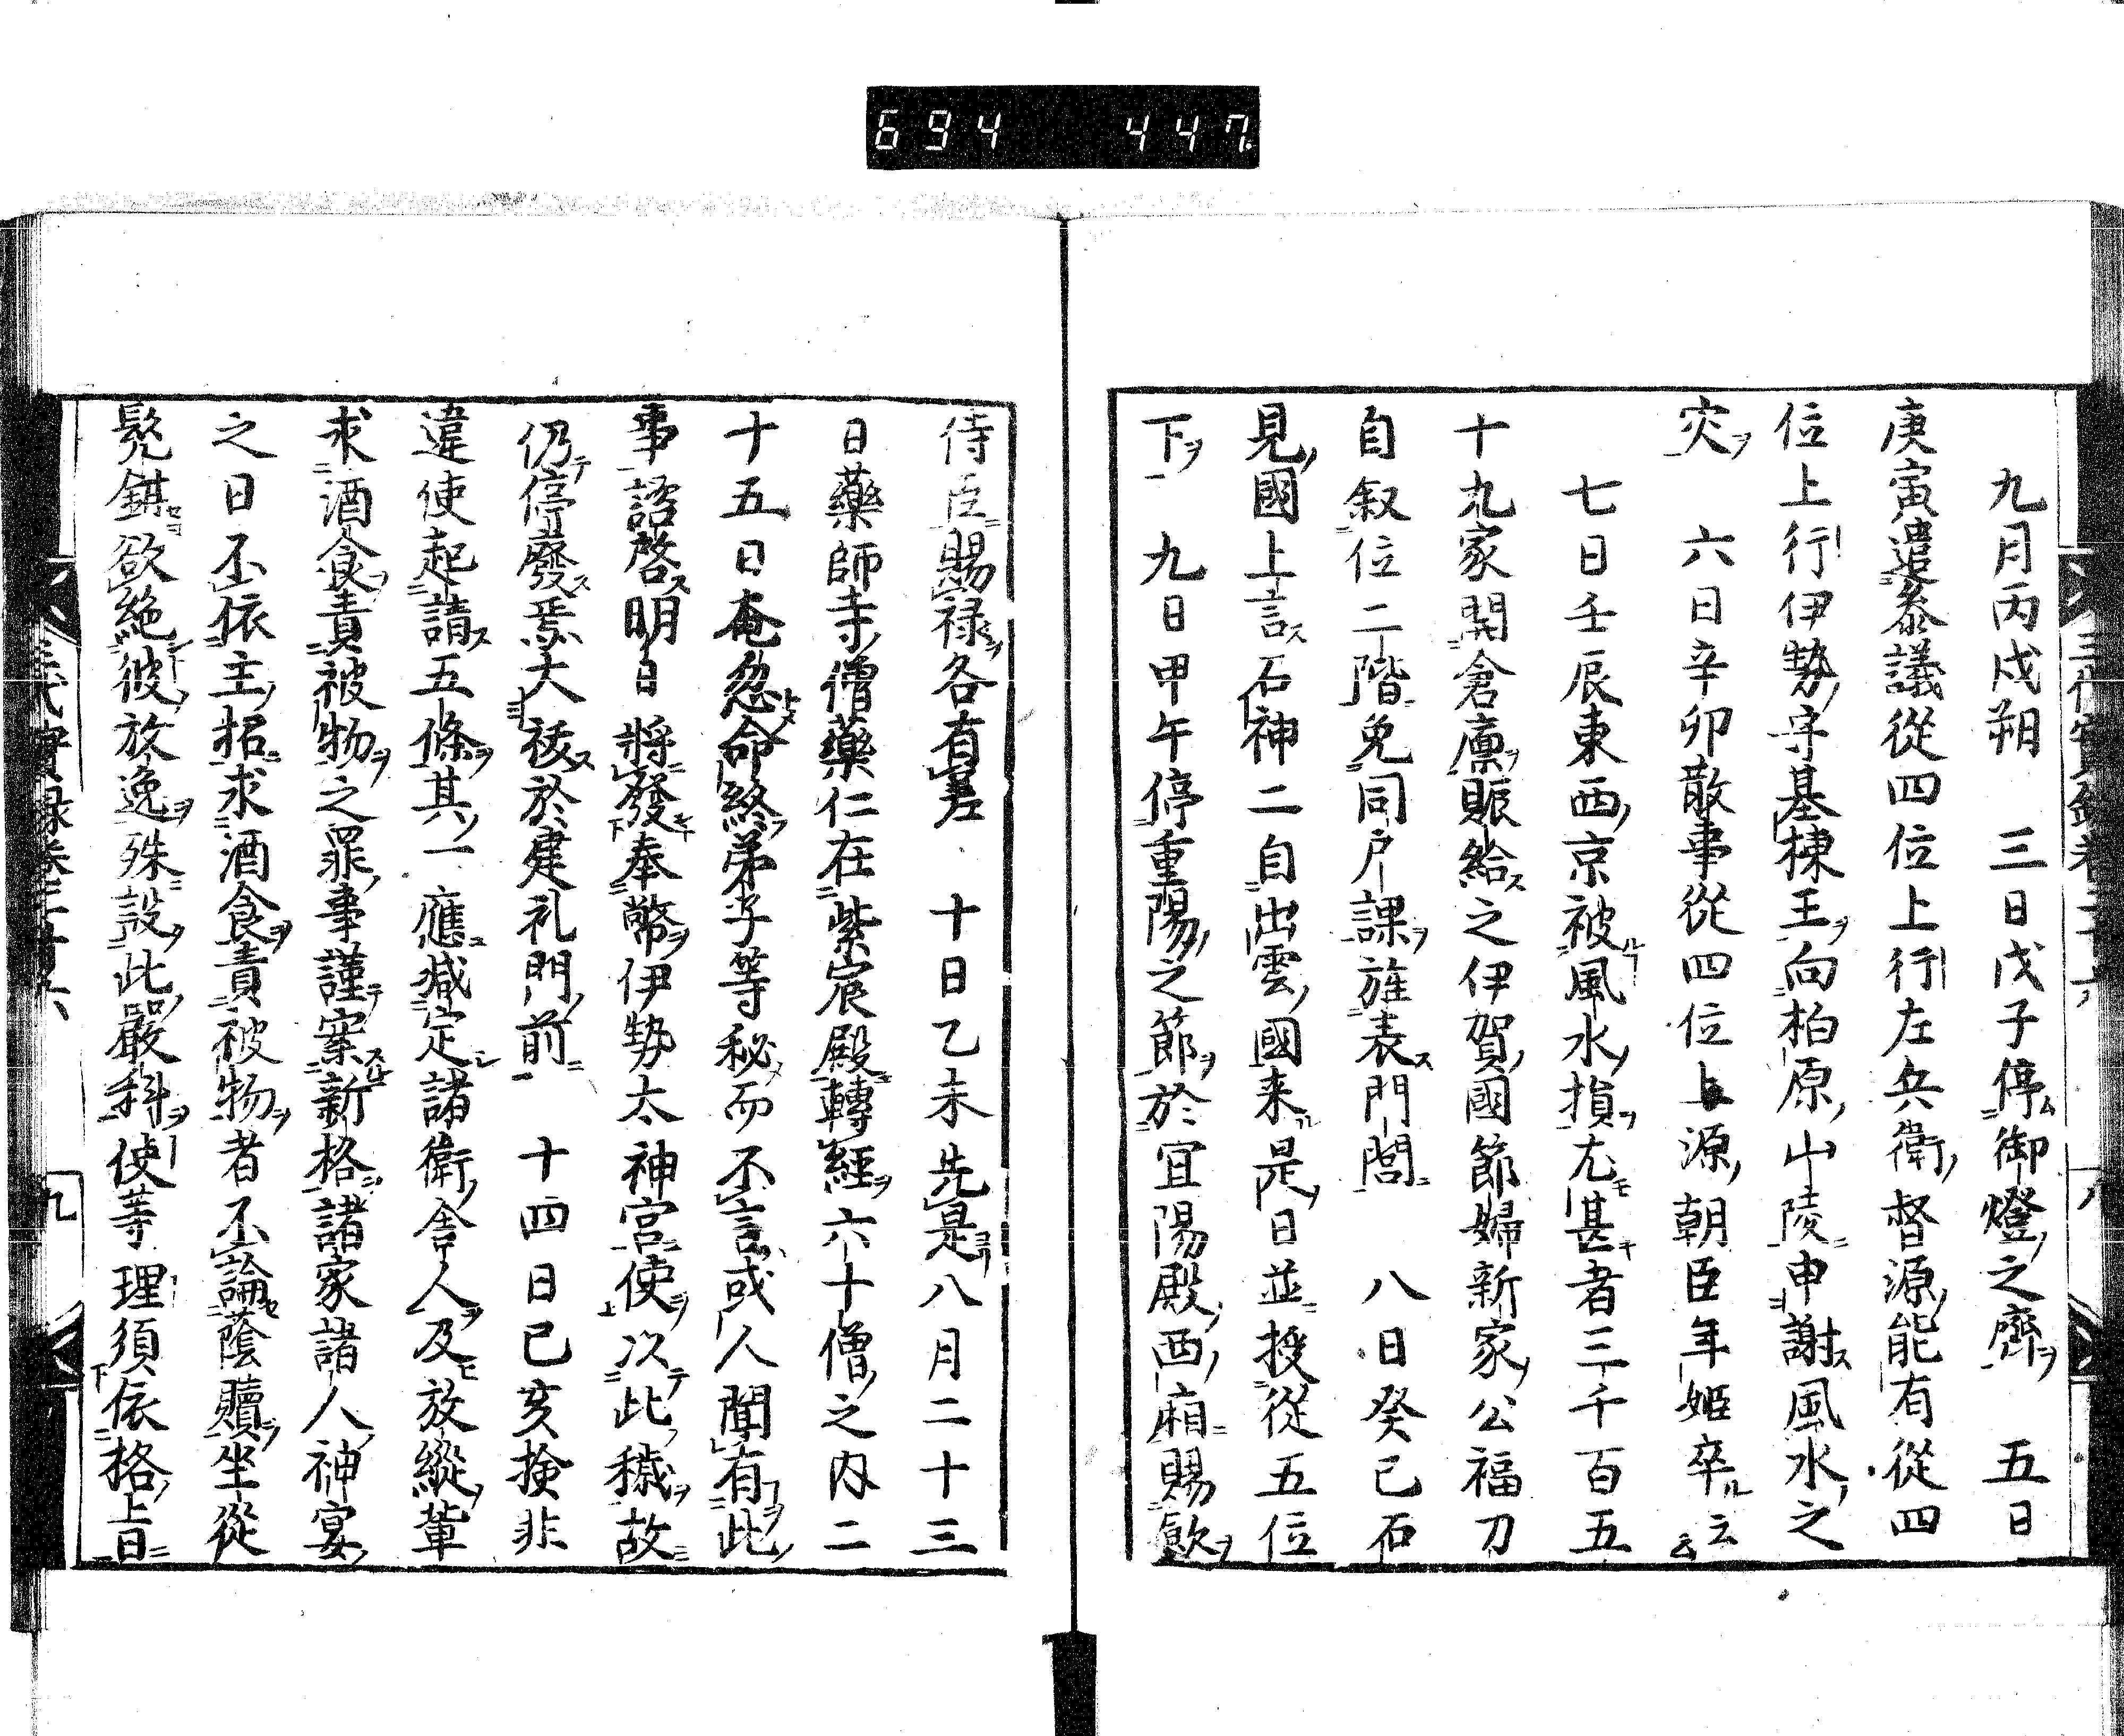 694 447
九月丙戌朔 三日戊子停御燈之齋 五日
庚寅遣參議從四位上行左兵衛督源能有從四
位上行伊勢守基棟王向柏原山陵申謝風水之
灾 六日辛卯散事從四位上源朝臣年姬卒云云
七日壬辰東西京被風水損尤甚者三千百五
十九家開倉廩賑給之伊賀國節婦新家公福刀
自叙位二階免同戶課旌表門閭 八日癸已石
見國上言石神二自出雲國来是日並授從五位
下 九日甲午停重陽之節於宜陽殿西廂賜飲
侍臣賜禄各有差 十日乙未先是八月二十三
日藥師寺僧藥仁在紫宸殿轉經六十僧之内二
十五日奄忽命終弟子等秘而不言或人聞有此
事諮啓明日將發奉幣伊勢太神宮使以此穢故
仍停廢焉大祓於建礼門前 十四日已亥撿非
違使起請五條其一應减定諸衛舎人及放縱輩
求酒食責被物之罪事謹案新格諸家諸人神宴
之日不依主招求酒食責被物者不論蔭贖坐從
髡鉗欲絶彼放逸殊設此嚴科使等理須依格上日
三代實録卷三十六 九